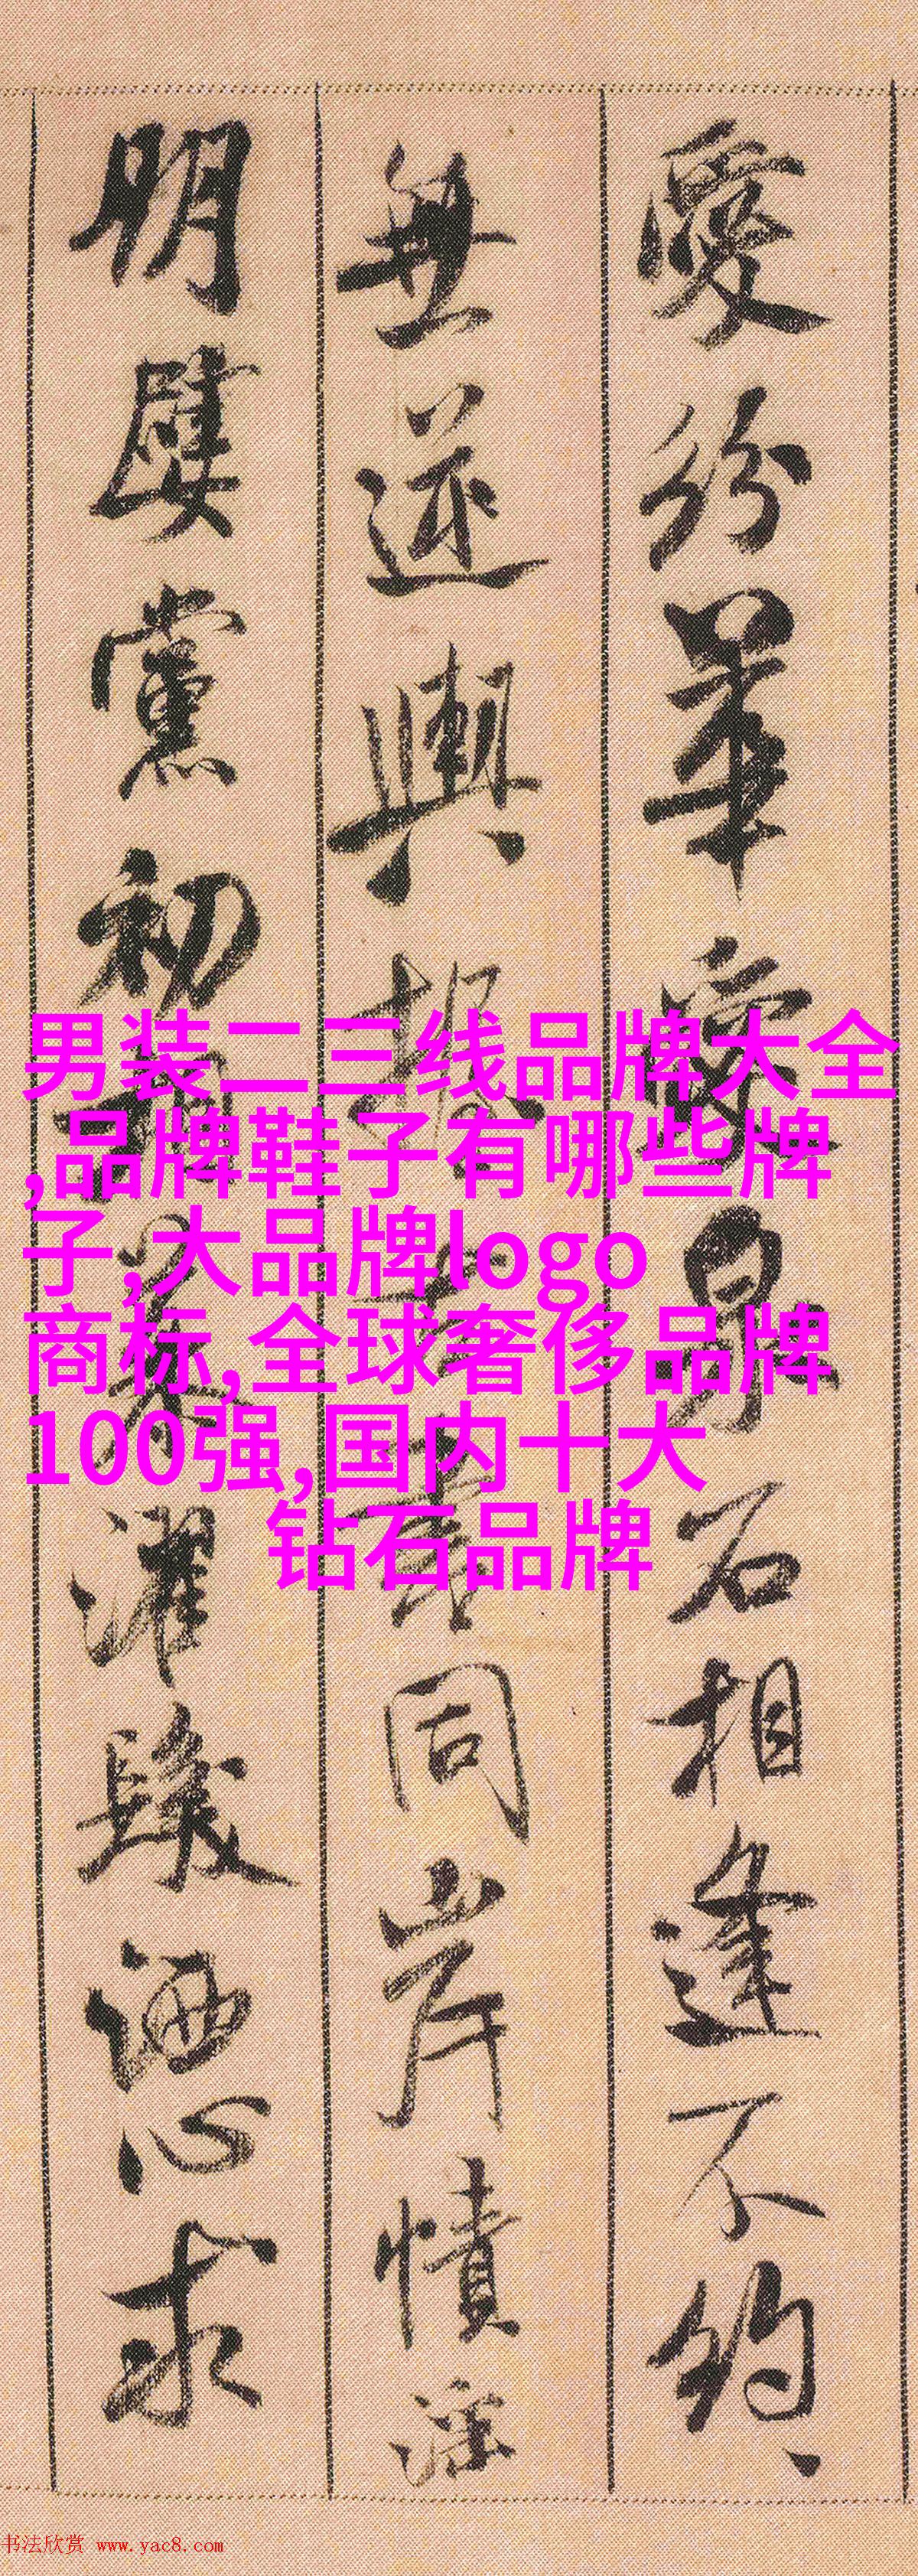 愛紛華愛泉石相逢不約
無逆與 同岸幘
明 黨初 濯髮洒心求
男装二三线品牌大全
,品牌鞋子有哪些牌
子,大品牌logo
商标,全球奢侈品牌
100强,国内十大
钻石品牌
书法欣赏 www.yac8.com